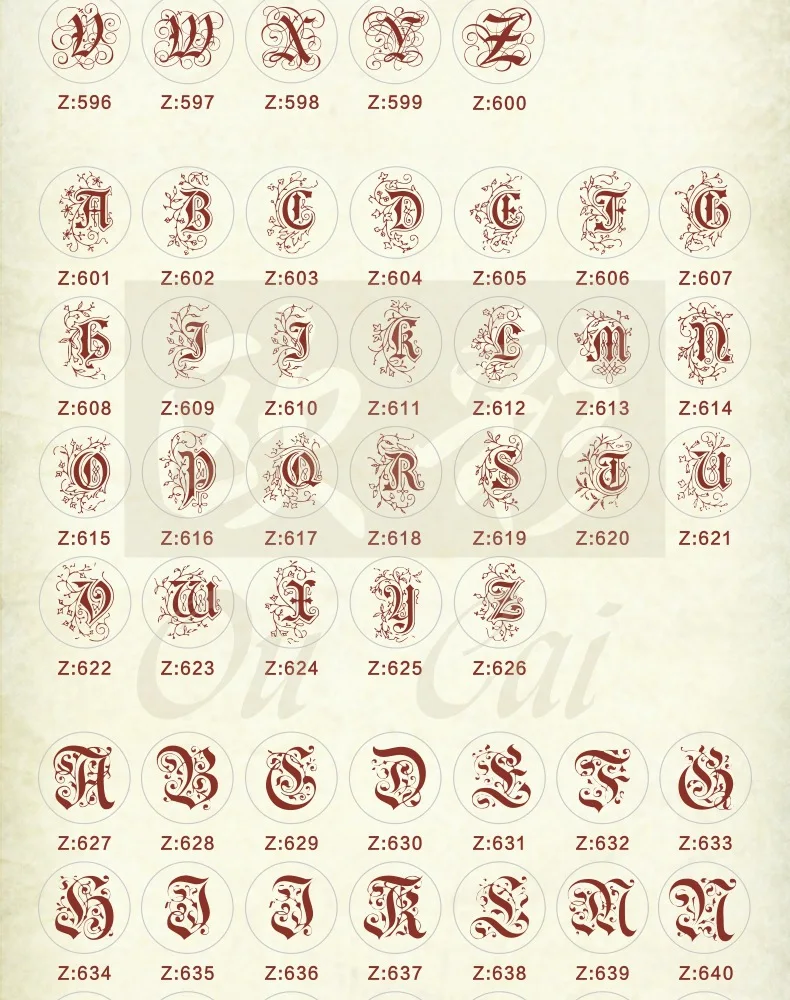 V W X Y Z
Z:596 Z:597 Z:598 Z:599 Z:600
A B C D E F G
Z:601 Z:602 Z:603 Z:604 Z:605 Z:606 Z:607
H I J K L M N
Z:608 Z:609 Z:610 Z:611 Z:612 Z:613 Z:614
O P Q R S T U
Z:615 Z:616 Z:617 Z:618 Z:619 Z:620 Z:621
V W X Y Z
Z:622 Z:623 Z:624 Z:625 Z:626
Ou Cai
A B C D E F G
Z:627 Z:628 Z:629 Z:630 Z:631 Z:632 Z:633
H I J K L M N
Z:634 Z:635 Z:636 Z:637 Z:638 Z:639 Z:640